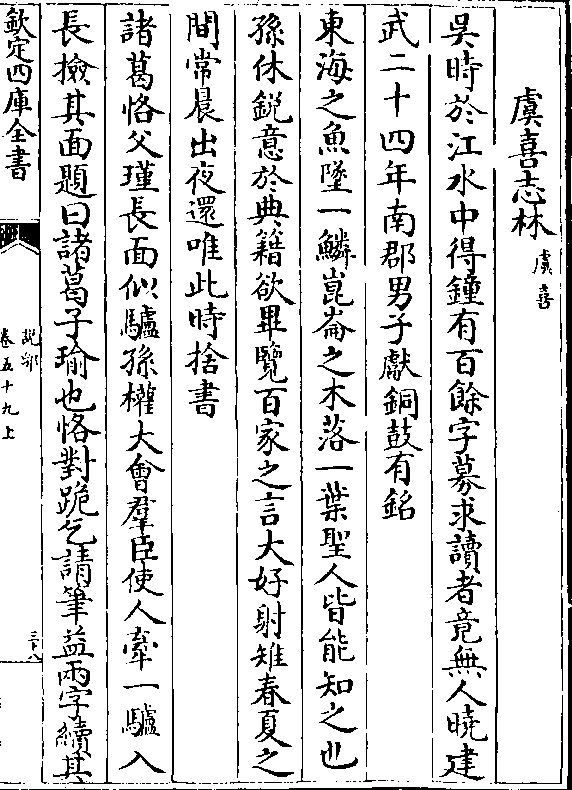 虞喜志林
虞喜
吳時於江水中得鐘有百餘字募求讀者竟無人曉建
武二十四年南郡男子獻銅鼓有銘
東海之魚墜一鱗崑崙之木落一葉聖人皆能知之也
孫休銳意於典籍欲畢覽百家之言大好射雉春夏之
間常晨出夜還唯此時捨書
諸葛恪父瑾長面似驢孫權大會羣臣使人牽一驢入
長檢其面題曰諸葛子瑜也恪對跪乞請筆益兩字續其
欽定四庫全書
説郛
卷五十九上
三十八